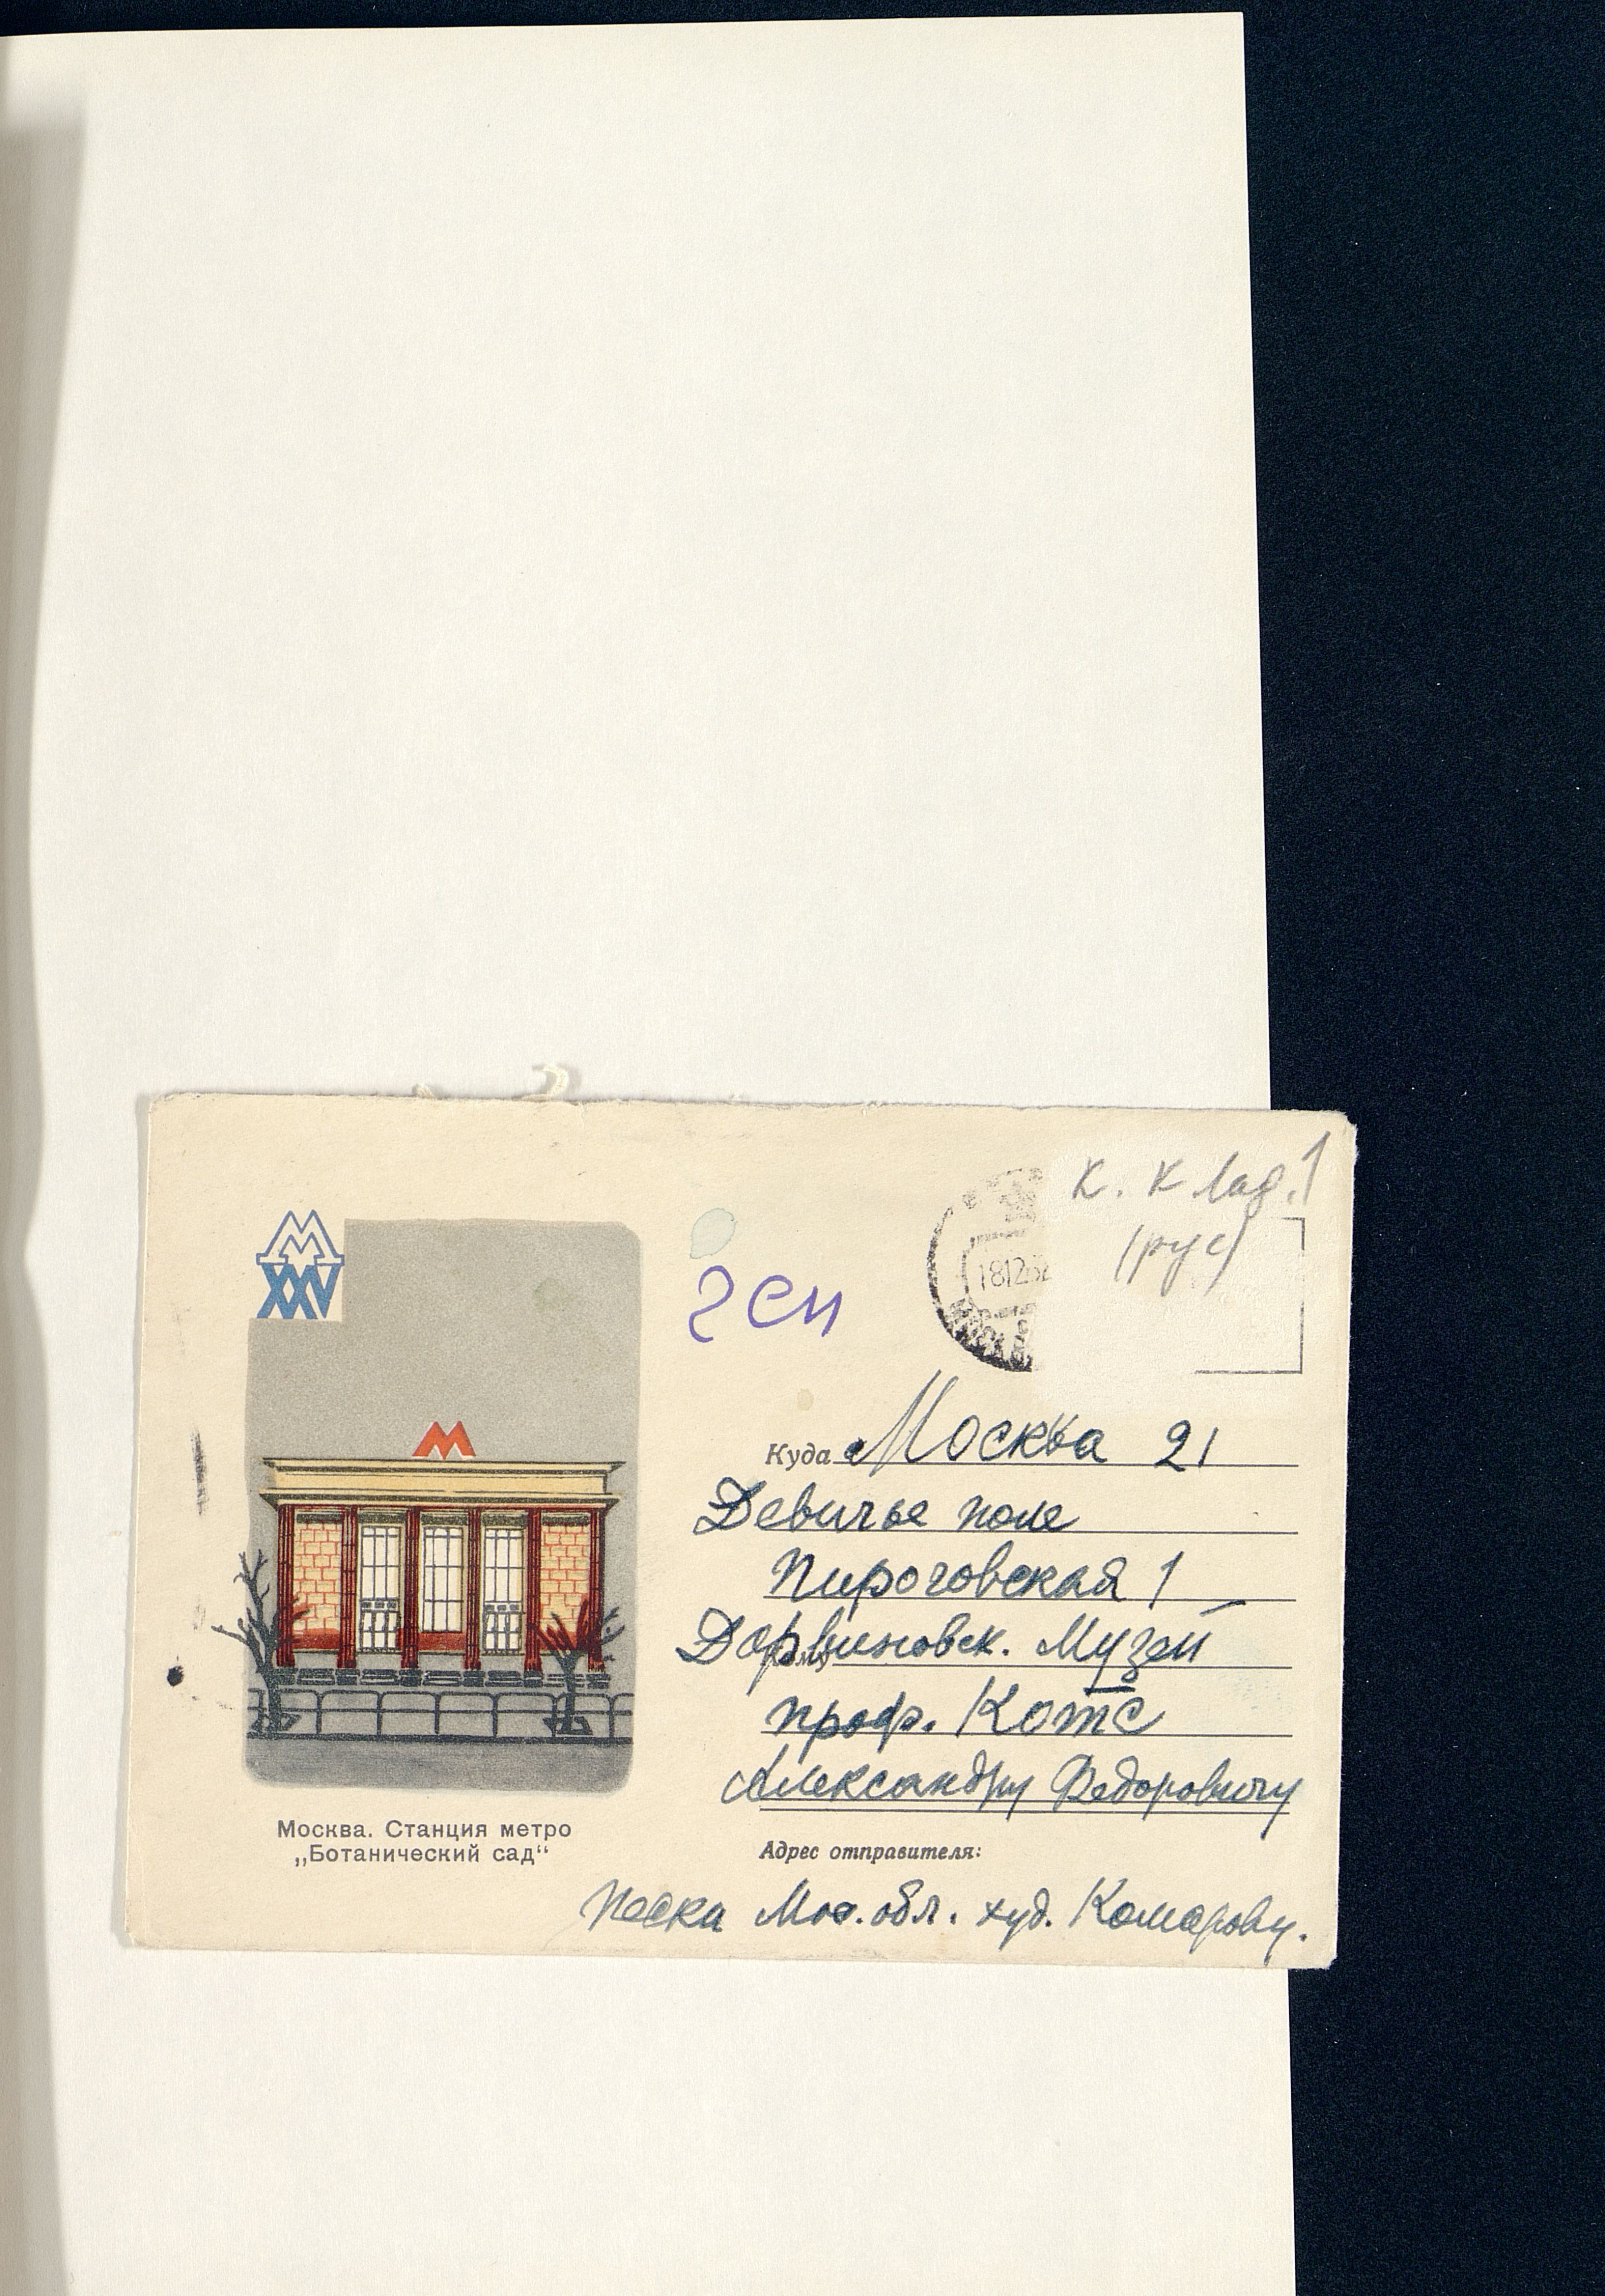 К. К Лад. 1
(рус)
М
XXV
181258
2 сп
М
Куда Москва 21
Девичье поле
Пироговская 1
Дарвиновск. Музей
проф. Котс
Александру Федоровичу
Москва. Станция метро
„Ботанический сад“
Адрес отправителя:
Пески Мос. обл. худ. Комарову.